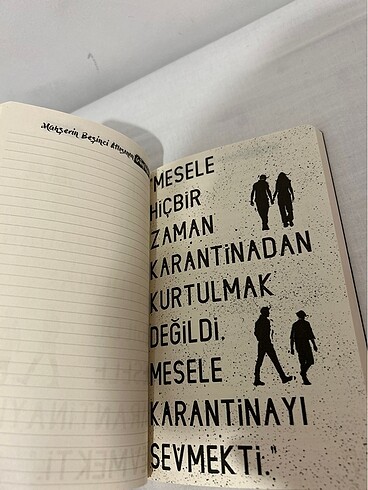 Mahşerin Beşinci Atlısının
"MESELE
HİÇBİR
ZAMAN
KARANTİNADAN
KURTULMAK
DEĞİLDİ,
MESELE
KARANTİNAYI
SEVMEKTİ."